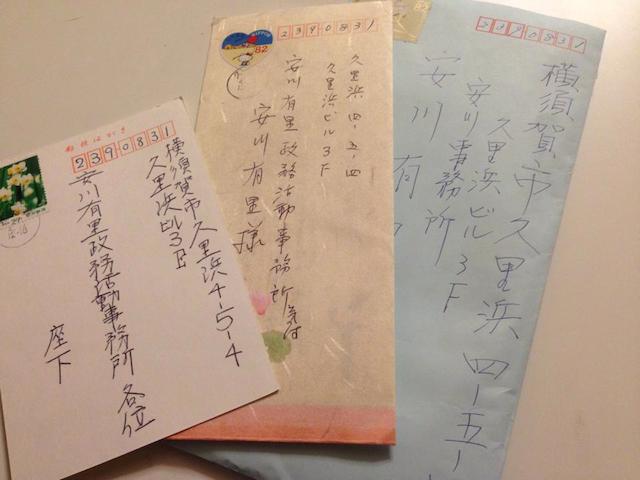 郵便はがき
2390831
横須賀市久里浜4-5-4
久里浜ビル3F
安川有里政務活動事務所 各位
座下
NIPPON
82
2390831
久里浜 四-五-四
久里浜ビル3F
安川有里政務活動事務所気付
安川有里様
82
2390831
横須賀市久里浜 四-五-
久里浜ビル3F
安川事務所
安川有